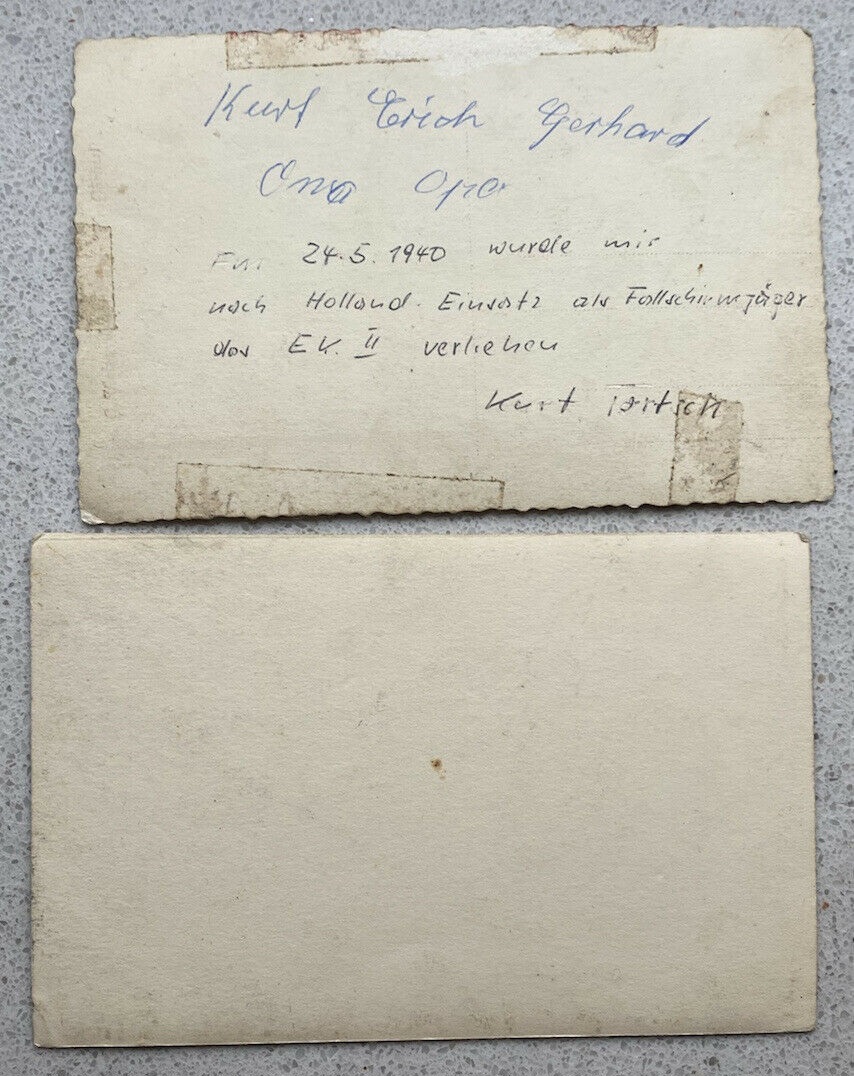 Kurt Erich Gerhard
Oma Opa
Am 24.5.1940 wurde mir
nach Holland-Einsatz als Fallschirmjäger
das EK. II verliehen
Kurt